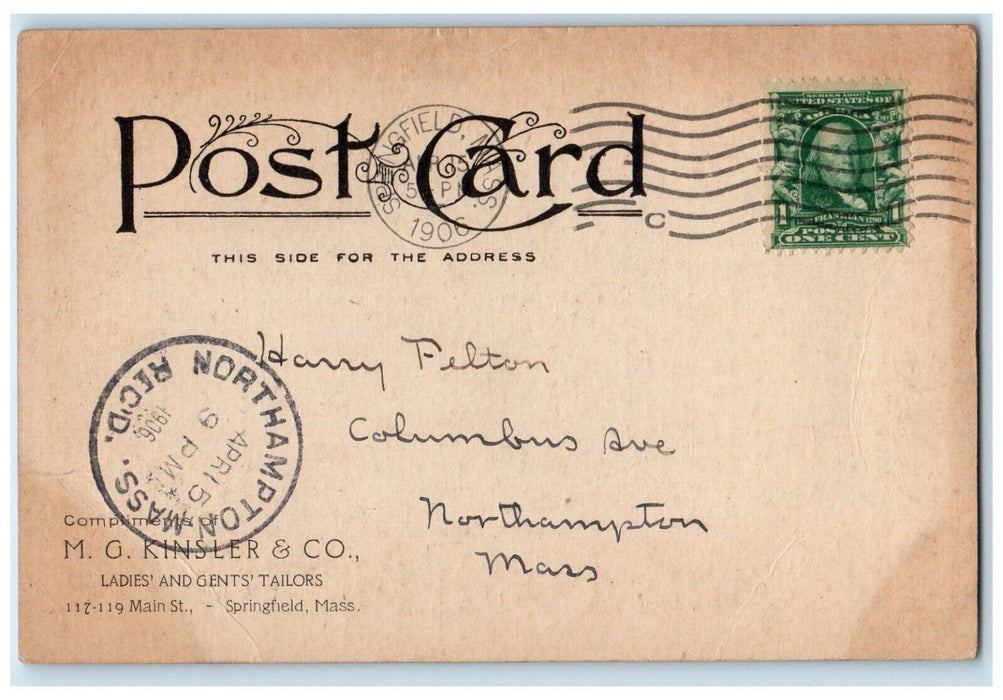 Post Card
SPRINGFIELD, MASS.
APR 5
5 PM
1906
C
SERIES 1902
UNITED STATES OF
AMERICA
1 FRANKLIN 1790 1
POSTAGE
ONE CENT
THIS SIDE FOR THE ADDRESS
Harry Felton
Columbus Ave
Northampton
Mass
NORTHAMPTON, MASS. REC'D.
APR 5
9 PM
1906
Compliments of
M. G. KINSLER & CO.,
LADIES' AND GENTS' TAILORS
117-119 Main St., - Springfield, Mass.